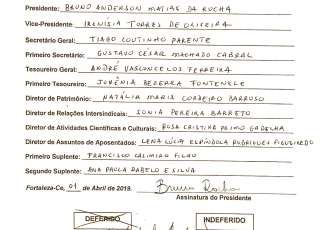 Presidente: BRUNO ANDERSON MATIAS DA ROCHA
Vice-Presidente IRENÍSIA TORRES DE OLIVEIRA
Secretário Geral: TIAGO COUTINHO PARENTE
Primeiro Secretário: GUSTAVO CÉSAR MACHADO CABRAL
Tesoureiro Geral: ANDRÉ VASCONCELOS FERREIRA
Primeiro Tesoureiro: JUVÊNIA BEZERRA FONTENELE
Diretor de Patrimônio: NATÁLIA MARIA CORDEIRO BARROSO
Diretor de Relações Intersindicais: SONIA PEREIRA BARRETO
Diretor de Atividades Científicas e Culturais: ROSA CRISTINA PRIMO GADELHA
Diretor de Assuntos de Aposentados: LENA LÚCIA ESPÍNDOLA RODRIGUES FIGUEIREDO
Primeiro Suplente: FRANCISCO CASIMIRO FILHO
Segundo Suplente: ANA PAULA RABELO E SILVA
Fortaleza-Ce, 01 de Abril de 2019. Bruno Rocha
Assinatura do Presidente
DEFERIDO INDEFERIDO